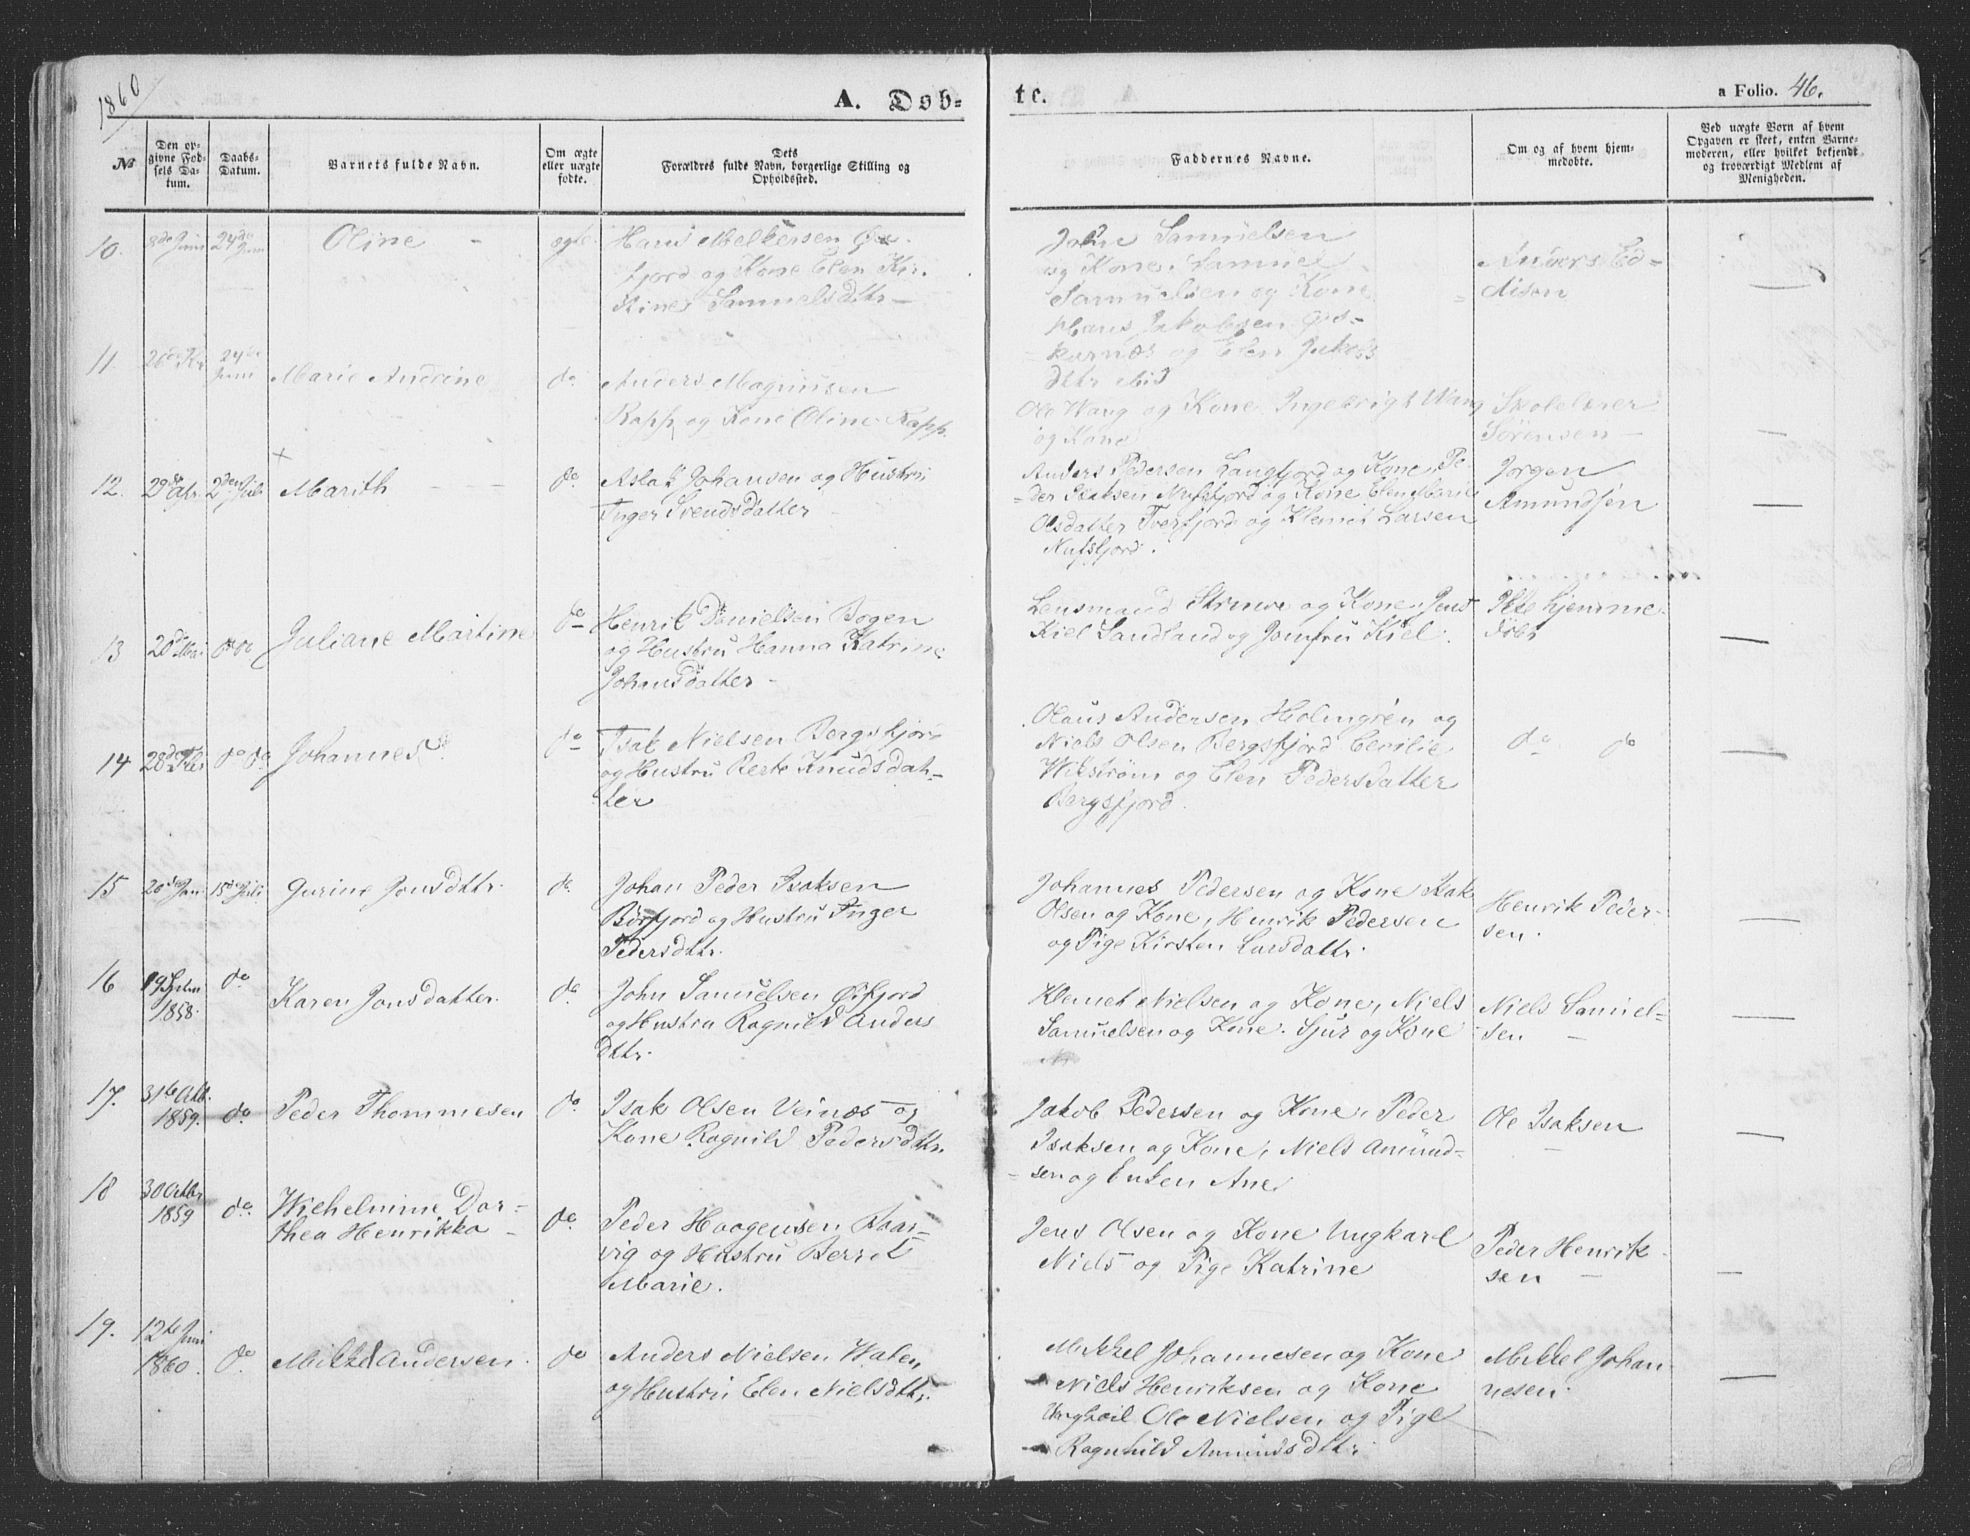 1860
A. Døb-
te.
a Folio. 46.
№
Den opgivne Fødsels Datum.
Daabs-Datum.
Barnets fulde Navn.
Om ægte eller uægte fødte.
Dets Forældres fulde Navn, borgerlige Stilling og Opholdssted.
Faddernes Navne.
Om og af hvem hjemmedøbte.
Ved uægte Børn af hvem Opgaven er skeet, enten Barnemoderen, eller hvilket bekjendt og troværdigt Medlem af Menigheden.
10.
8de Juni
24de Juni
Oline
ægte
Hans Melkersen Øx-
fjord og Kone Elen Kir.
stine Samuelsdttr
John Samuelsen
og Kone. Samuel
Samuelsen og Kone
Hans Jakobsen Øs-
karnæs og Elen Jakobs
dttr ibid
Anders Ed-
disen
11.
24de Juni
Marie Andrine
do
Anders Magnusen
Rapp og Kone Oline Rapp.
Ole Wang og Kone Ingebrigt Wang
og Kone
Skolelærer
Sørensen
12.
2den Juli
Marith
do
Aslak Johansen og Hustru
Inger Svendsdatter
Anders Pedersen Langfjord og Kone, Pe-
der Isaksen Nufsfjord og Kone Elen Marie
Olsdatter Tverfjord og Klemet Larsen
Nufsfjord.
Jørgen
Amundsen
13
20de Mai
do do
Juliane Martine
do
Henrik Danielsen Bogen
og Hustru Hanna Katrine
Johansdatter
Lensmand Struwe og Kone. Jens
Kiel Sandland og Jomfru Kiel.
Ikke hjemme-
døbt
14
do do
Johannes
do
Isak Nielsen Bergsfjord
og Hustru Berte Knudsdat-
ter
Olaus Andersen Holmgren og
Niels Olsen Bergsfjord Cecilie
Wikstrøm og Elen Pedersdatter
Bergsfjord.
do do
15
20de Jan
15de Juli
Gurine Jonsdttr.
do
Johan Peder Isaksen
Borfjord og Hustru Inger
Pedersdttr.
Johannes Pedersen og Kone Isak
Olsen og Kone, Henrik Pedersen
og Pige Kirsten Larsdattr.
Henrik Peder-
sen.
16
1858.
do
Karen Jonsdatter.
do
John Samuelsen Øxfjord
og Hustru Ragnild Anders
dttr.
Klemet Nielsen og Kone, Niels
Samuelsen og Kone. Sjur og Kone
Niels Samuel-
sen
17.
31te Okt.
1859.
do.
Peder Thommesen
do.
Isak Olsen Veinæs og
Kone Ragnild Pedersdttr.
Jakob Pedersen og Kone, Peder
Isaksen og Kone, Niels Amund-
sen og Enken Ane
Ole Isaksen
18
30 Octbr
1859
do.
Wilhelmine Dor-
thea Henrikka
do.
Peder Haagensen Baar-
vig og Hustru Berret
Marie.
Jens Olsen og Kone Ungkarl
Niels og Pige Katrine
Peder Henrik
sen
19.
12te Juni
1860.
do
Mikkel Andersen.
do
Anders Nielsen Walen
og Hustru Elen Nielsdttr.
Mikkel Johannesen og Kone
Niels Henriksen og Kone
Ungkarl Ole Nielsen og Pige
Ragnhild Amundsdttr.
Mikkel Johan
nesen.